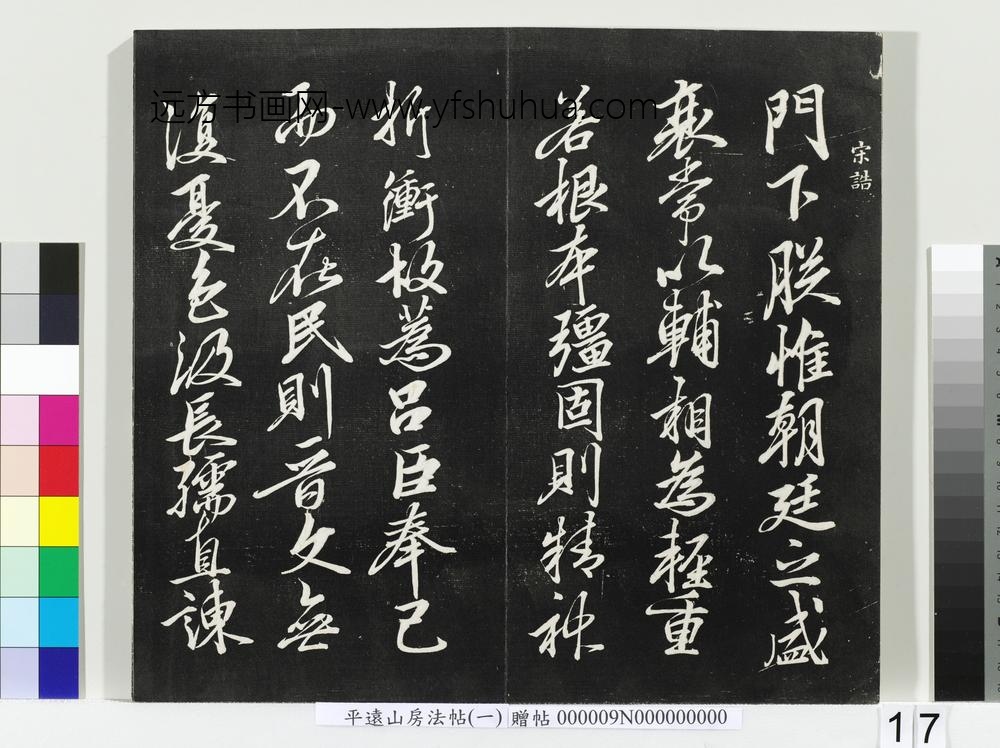 宋誥
門下朕惟朝廷之盛
衰常以輔相為輕重
若根本彊固則精神
折衝故蒍呂臣奉己
而不在民則晋文無
復憂色汲長孺直諫
远方书画网-www.yfshuhua.com
平遠山房法帖(一) 贈帖 000009N000000000
17